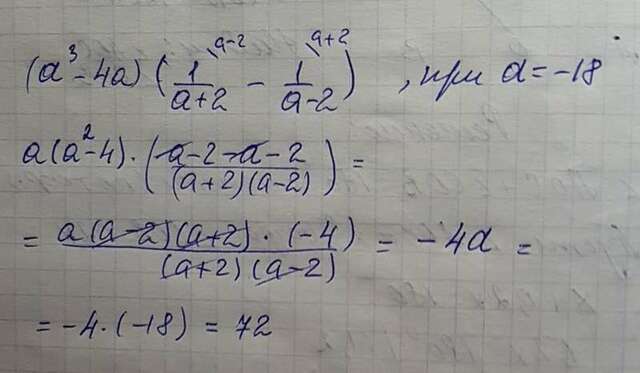 (a³-4a) (1/(a+2) ^(a-2) - 1/(a-2) ^(a+2)) , при a=-18
a(a²-4)·((a-2-a-2)/((a+2)(a-2))) =
= (a(a-2)(a+2)·(-4))/((a+2)(a-2)) = -4a =
= -4·(-18) = 72